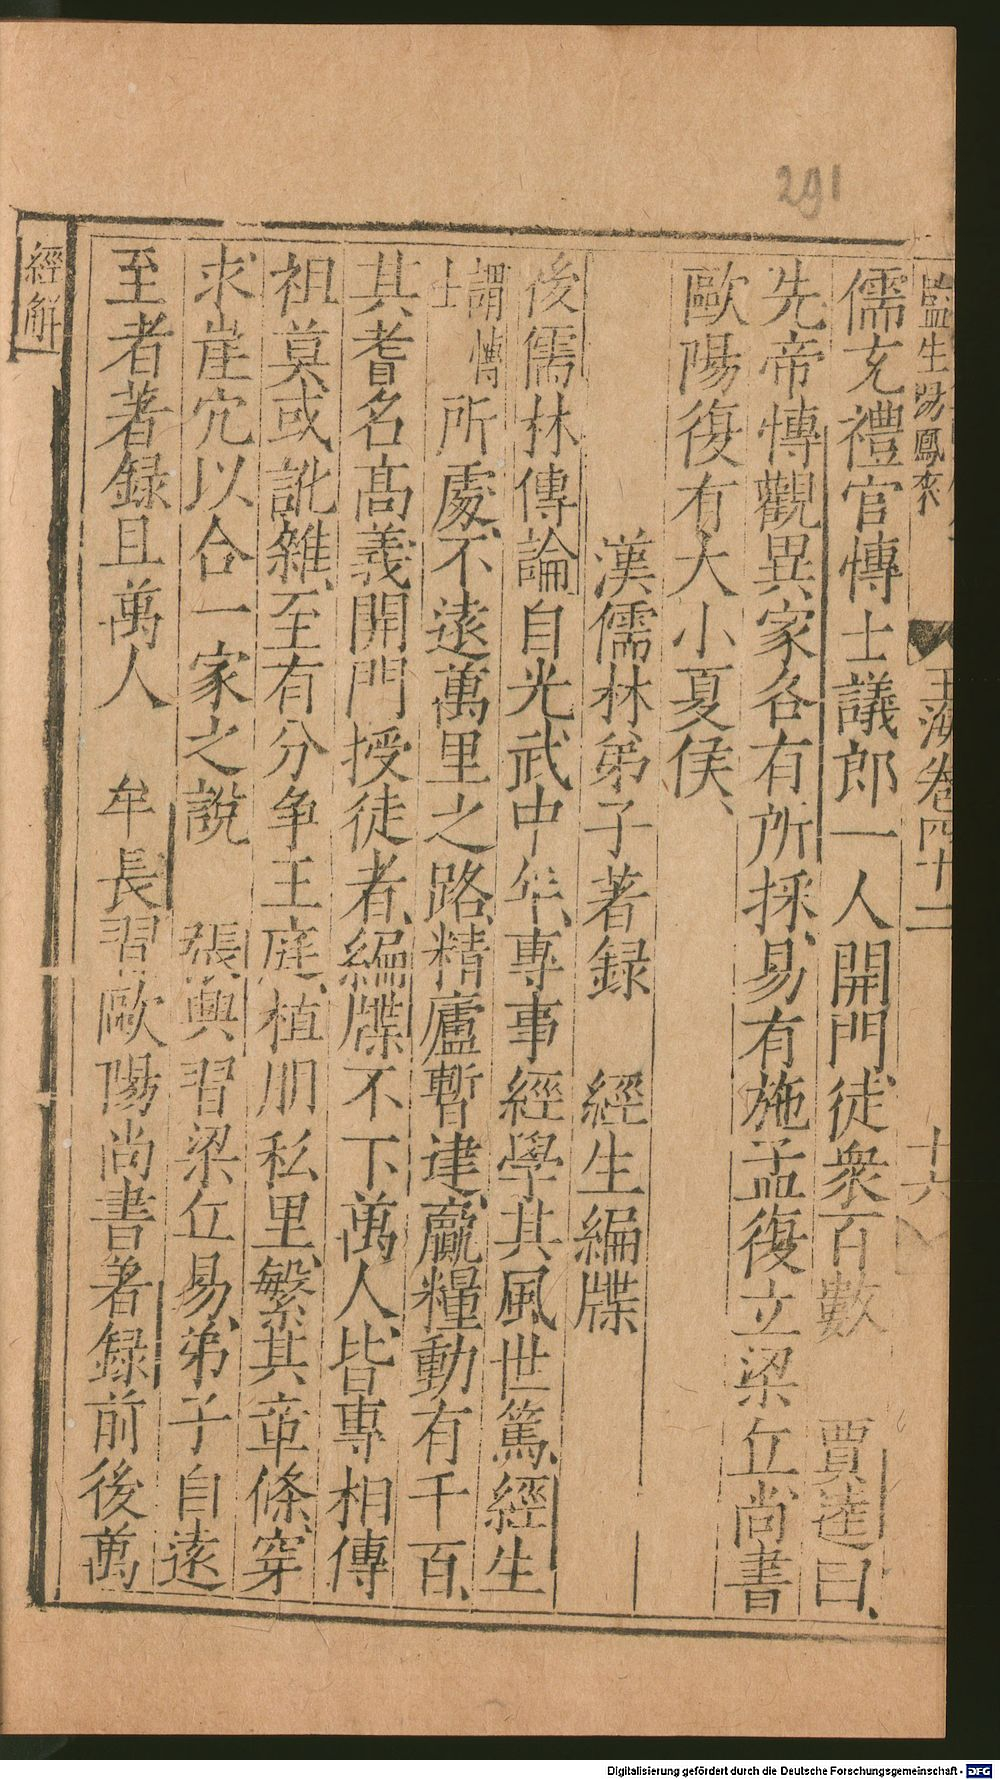 291
監生
鳳來
玉海卷四十二
十六
儒充禮官博士議郎一人開門徒衆百數 賈逵曰
先帝博觀異家各有所採易有施孟復立梁丘尚書
歐陽復有大小夏侯
漢儒林弟子著録 經生編牒
後儒林傳論自光武中年專事經學其風世篤經生
謂博士所處不遠萬里之路精廬暫建贏糧動有千百
其耆名高義開門授徒者編牒不下萬人皆專相傳
祖莫或訛雜至有分争王庭植朋私里繁其章條穿
求崖穴以合一家之說 張興習梁丘易弟子自遠
至者著録且萬人 牟長習歐陽尚書著録前後萬
經解
Digitalisierung gefördert durch die Deutsche Forschungsgemeinschaft - DFG